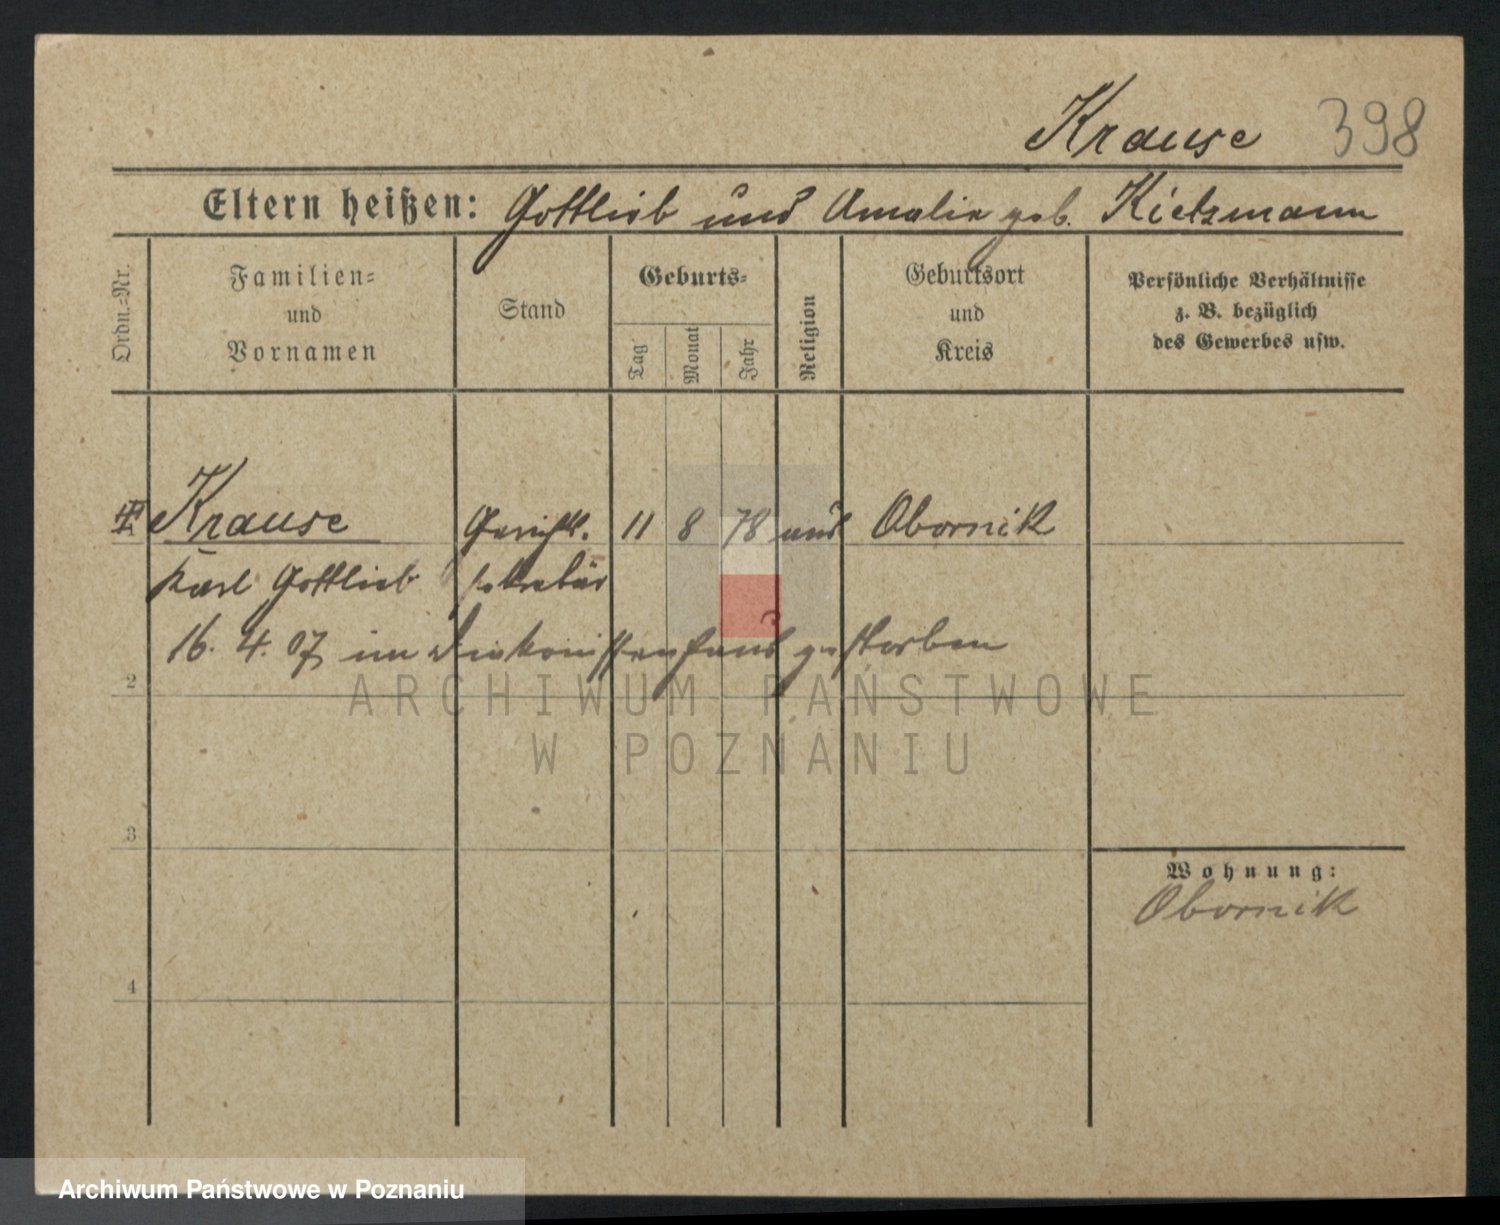 Krause 398
Eltern heißen: Gottlieb und Amalie geb. Kietzmann
Ordn.-Nr.
Familien-
und
Vornamen
Stand
Geburts-
Tag
Monat
Jahr
Religion
Geburtsort
und
Kreis
Persönliche Verhältnisse
z. B. bezüglich
des Gewerbes usw.
Krause Gerichts. 11 8 78 Obornik
Karl Gottlieb sekretär
16. 4. 07 im Diakonissenhaus gestorben
2
ARCHIWUM PAŃSTWOWE
W POZNANIU
3
Wohnung:
Obornik
4
Archiwum Państwowe w Poznaniu